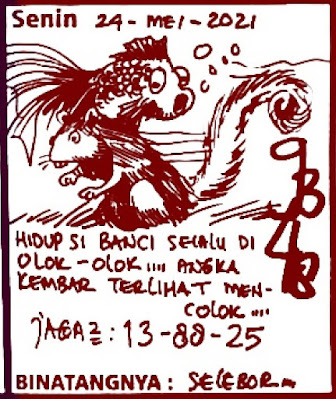 Senin 24 - MEI - 2021
HIDUP SI BANCI SELALU DI
OLOK - OLOK .... ANGKA
KEMBAR TERLIHAT MEN-
COLOK ....
JAGA2 : 13-88-25
BINATANGNYA : SELEBOR